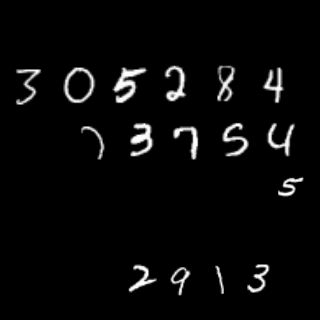 305284
73754
5
2913